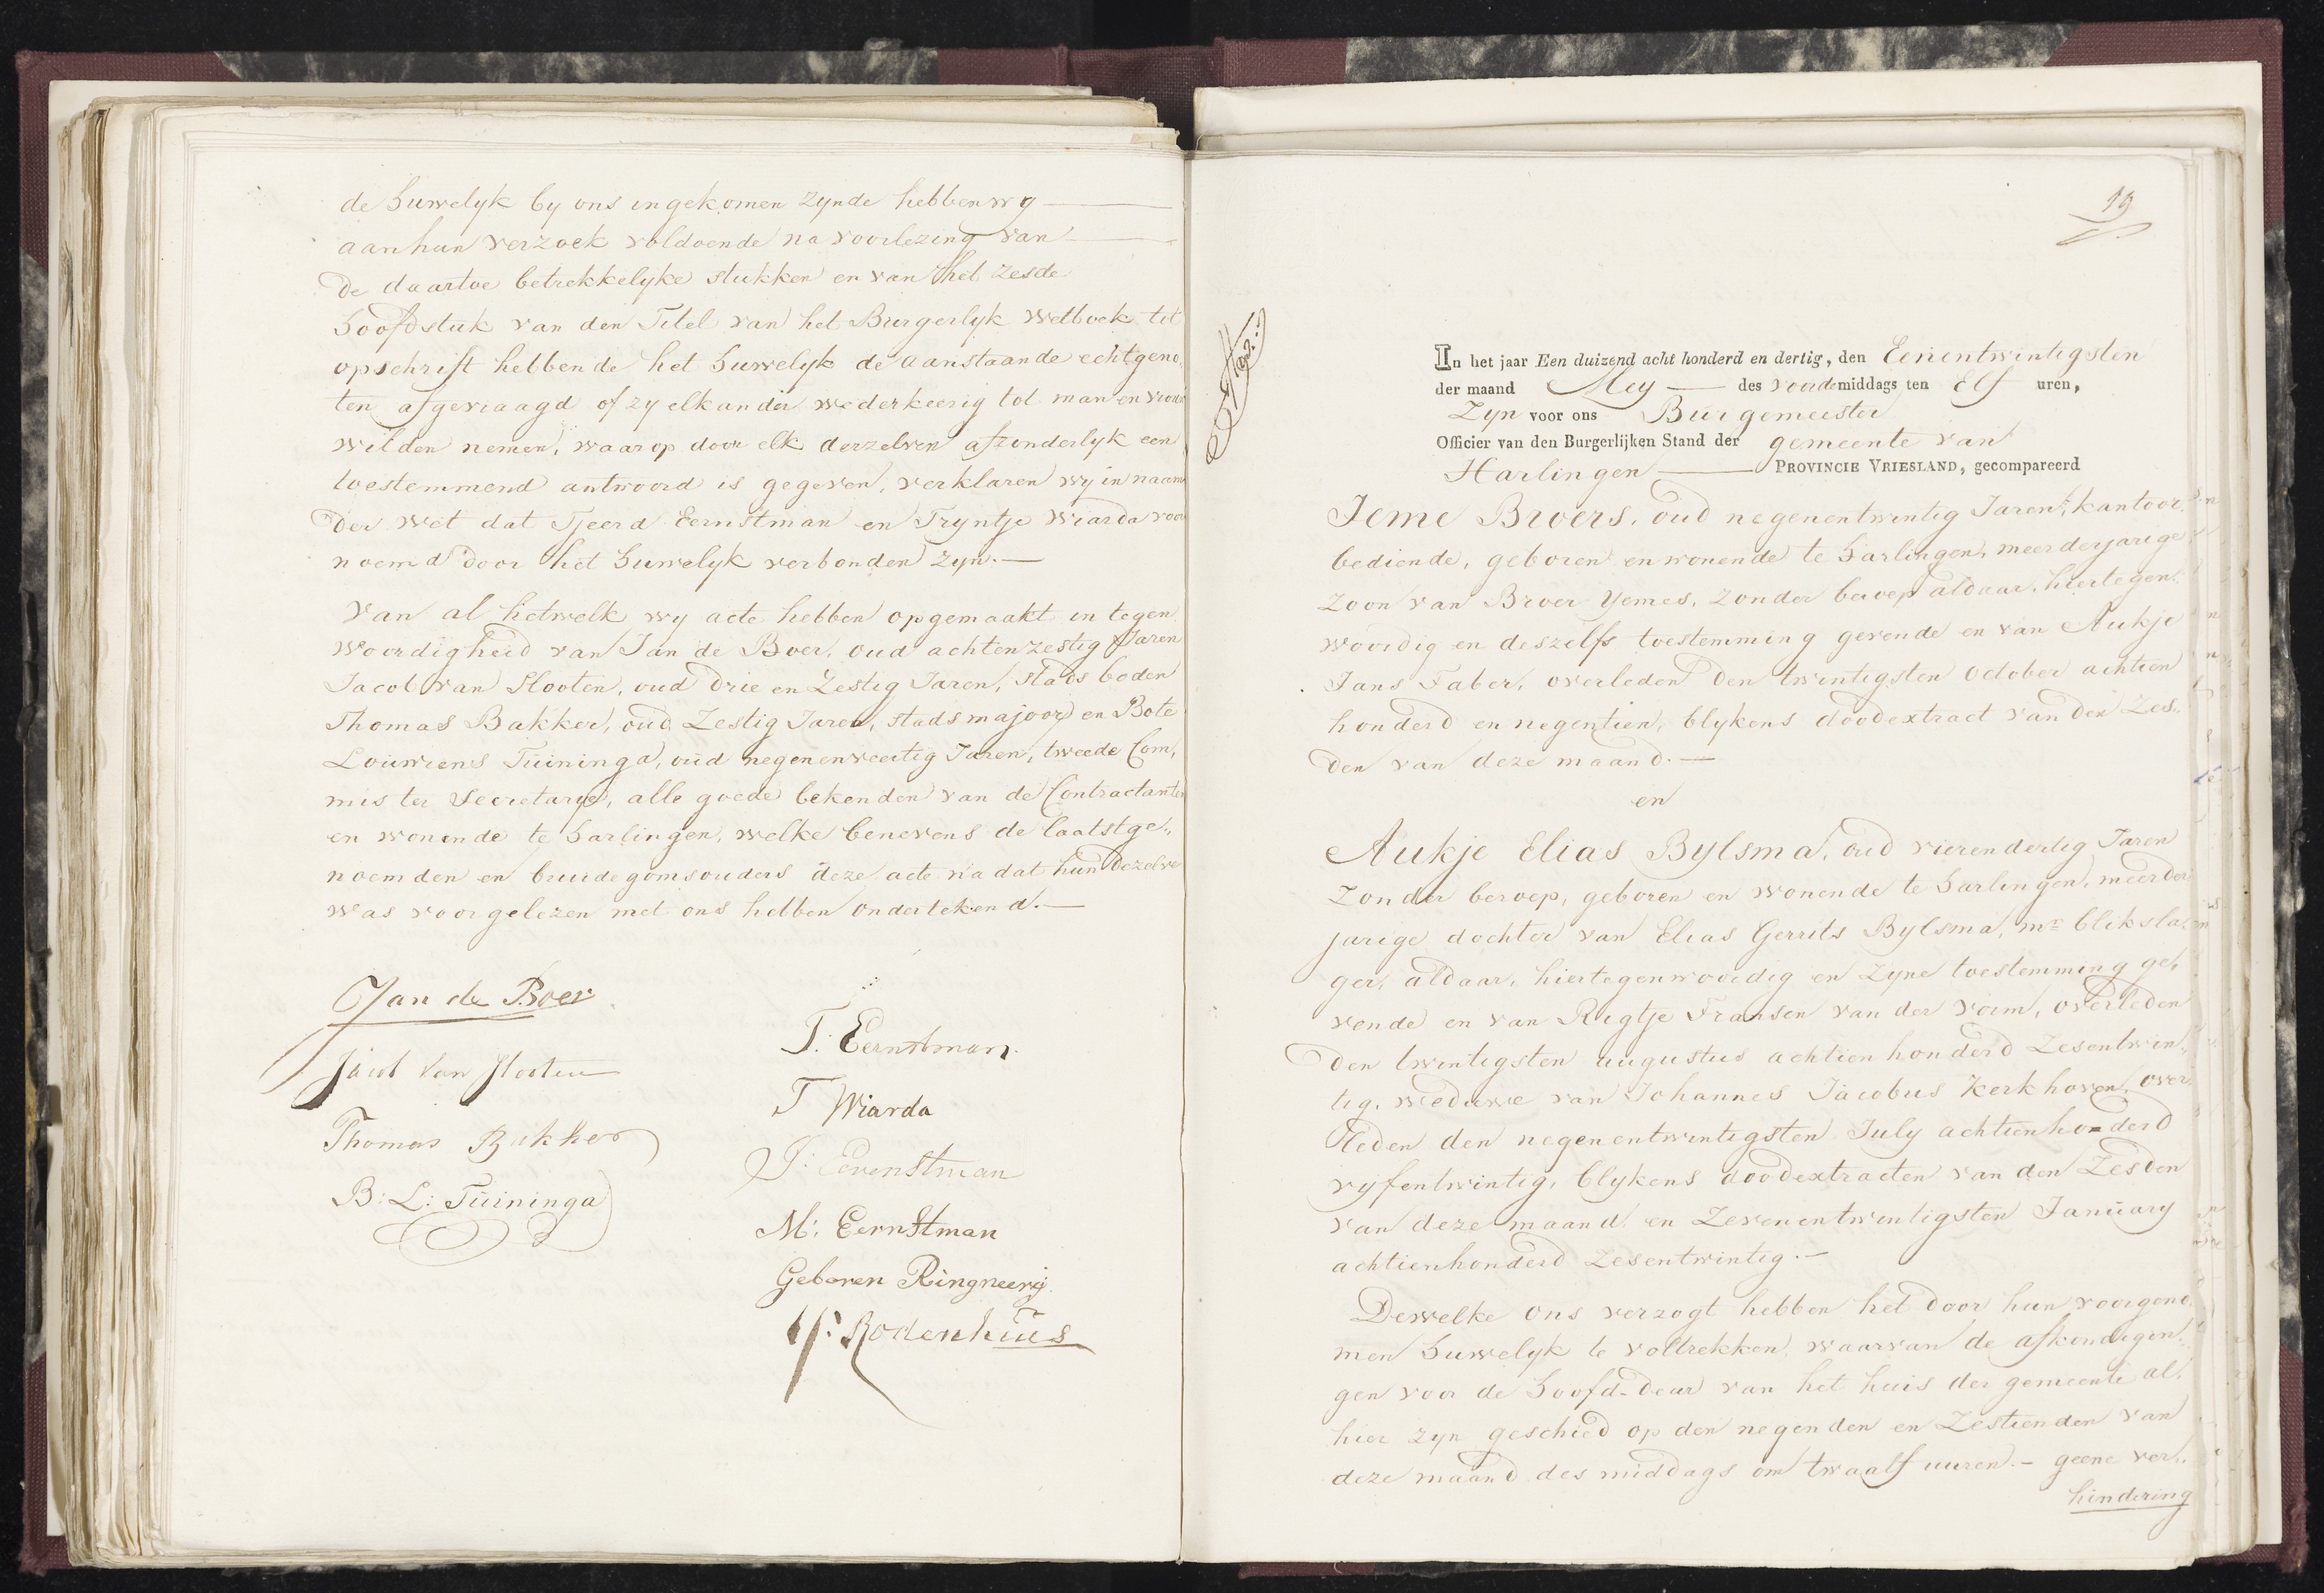 de Huwelyk by ons ingekomen zynde hebben wy
aan hun verzoek voldoende na voorlezing van
de daartoe betrekkelyke stukken en van het zesde
Hoofdstuk van den Titel van het Burgerlyk Wetboek tot
opschrift hebbende het Huwelyk de aanstaande echtgeno,
ten afgevraagd of zy elkander wederkeerig tot man en vrouw
wilden nemen, waarop door elk derzelven afzonderlyk een
toestemmend antwoord is gegeven, verklaren wy in naam
der Wet dat Tjeerd Eernstman en Tryntje Wiarda voor
noemd door het Huwelyk verbonden zyn.—
Van al hetwelk wy acte hebben opgemaakt in tegen
woordigheid van Jan de Boer, oud achtenzestig Jaren
Jacob van Slooten, oud drie en Zestig Jaren, stads boden
Thomas Bakker, oud Zestig Jaren, stads majoor en Bote
Louwrens Tuininga, oud negenenveertig Jaren, tweede Com,
mis ter Secretarye, alle goede bekenden van de Contractanten
en wonende te Harlingen, welke benevens de laatstge„
noemden en bruidegomsouders deze acte na dat hun dezelve
was voorgelezen met ons hebben ondertekend.—
Jan de Boer
Jacob van Slooten
Thomas Bakker
B: L: Tuininga
T: Eernstman
T Wiarda
J: Eernstman
M: Eernstman
Geboren Ringneerij
Rodenhuis
19
In het jaar Een duizend acht honderd en dertig, den Eenentwintigsten
der maand Mey — des voordemiddags ten Elf uren,
Zyn voor ons Burgemeester
Officier van den Burgerlijken Stand der gemeente van
Harlingen — PROVINCIE VRIESLAND, gecompareerd
Ieme Broers, oud negenentwintig Jaren, kantoor
bediende, geboren en wonende te Harlingen, meerderjarige
zoon van Broer Yemes, zonder beroep aldaar, hiertegen„
woordig en deszelfs toestemming gevende en van Aukje
Jans Faber, overleden den twintigsten October achtien
honderd en negentien, blykens doodextract van den Zes„
den van deze maand.—
en
Aukje Elias Bylsma, oud vierendertig Jaren
Zonder beroep, geboren en wonende te Harlingen, meerder
jarige dochter van Elias Gerrits Bylsma, mr bliksla„
ger, aldaar, hiertegenwoordig en zyne toestemming ge,
vende en van Rigtje Fransen van der Vorm, overleden
den twintigsten augustus achtien honderd Zesentwin„
tig, weduwe van Johannes Jacobus Kerkhoven, over
leden den negenentwintigsten July achtienhonderd
vyfentwintig, blykens doodextracten van den Zesden
van deze maand en Zevenentwintigsten January
achtienhonderd Zesentwintig.—
Dewelke ons verzogt hebben het door hun voorgeno
men Huwelyk te voltrekken, waarvan de afkondigin
gen voor de Hoofd-deur van het huis der gemeente al,
hier zyn geschied op den negenden en Zestienden van
deze maand des middags om twaalf uuren.— geene ver„
hindering